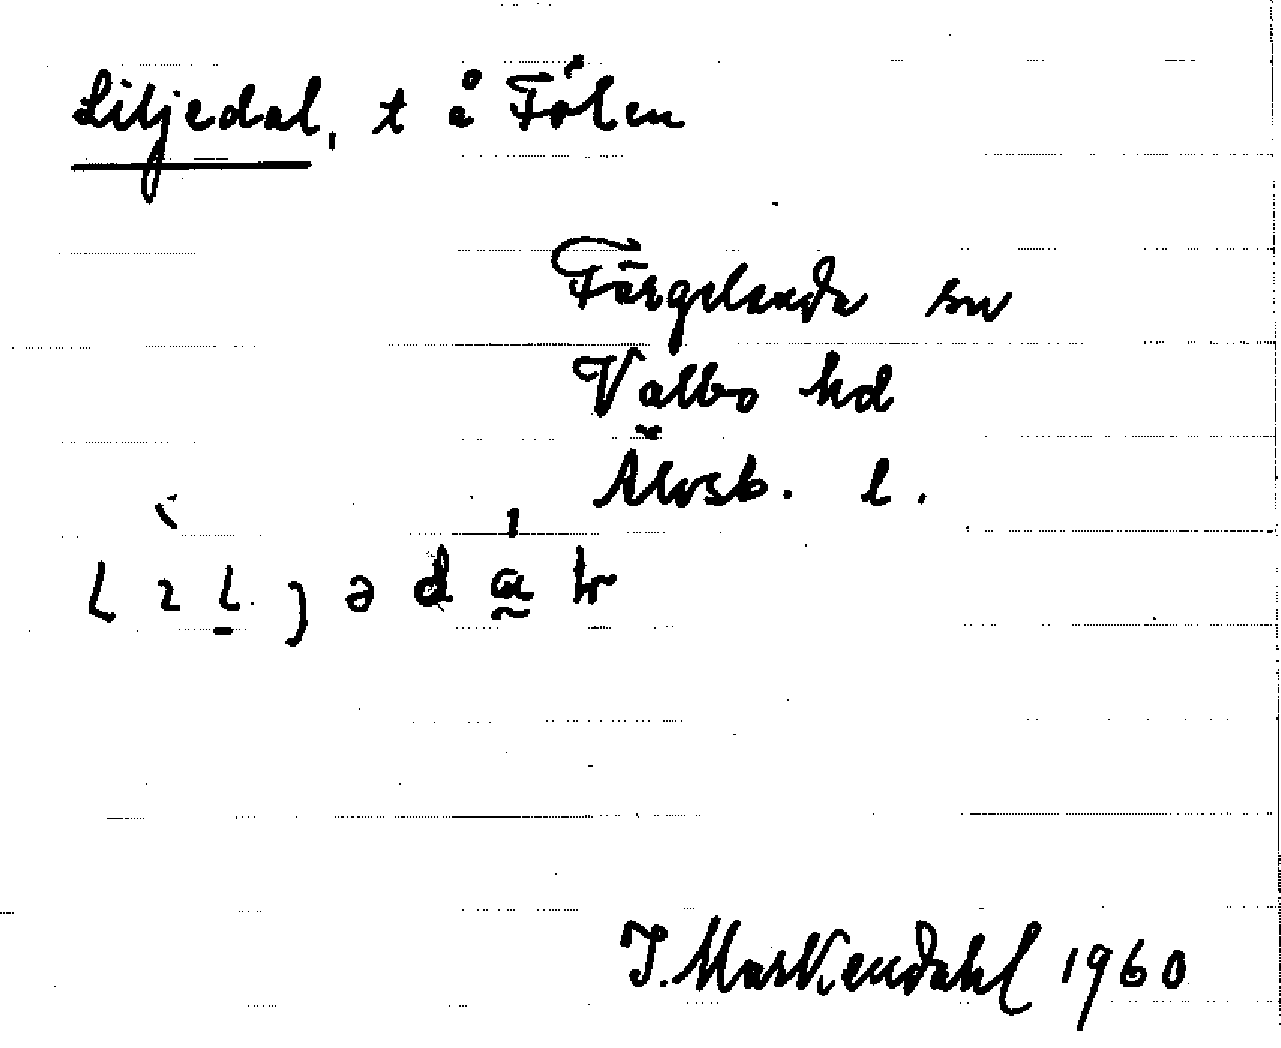 Liljedal, t å Fölen
Färgelanda sn
Valbo hd
Älvsb. l.
I. Markendahl 1960